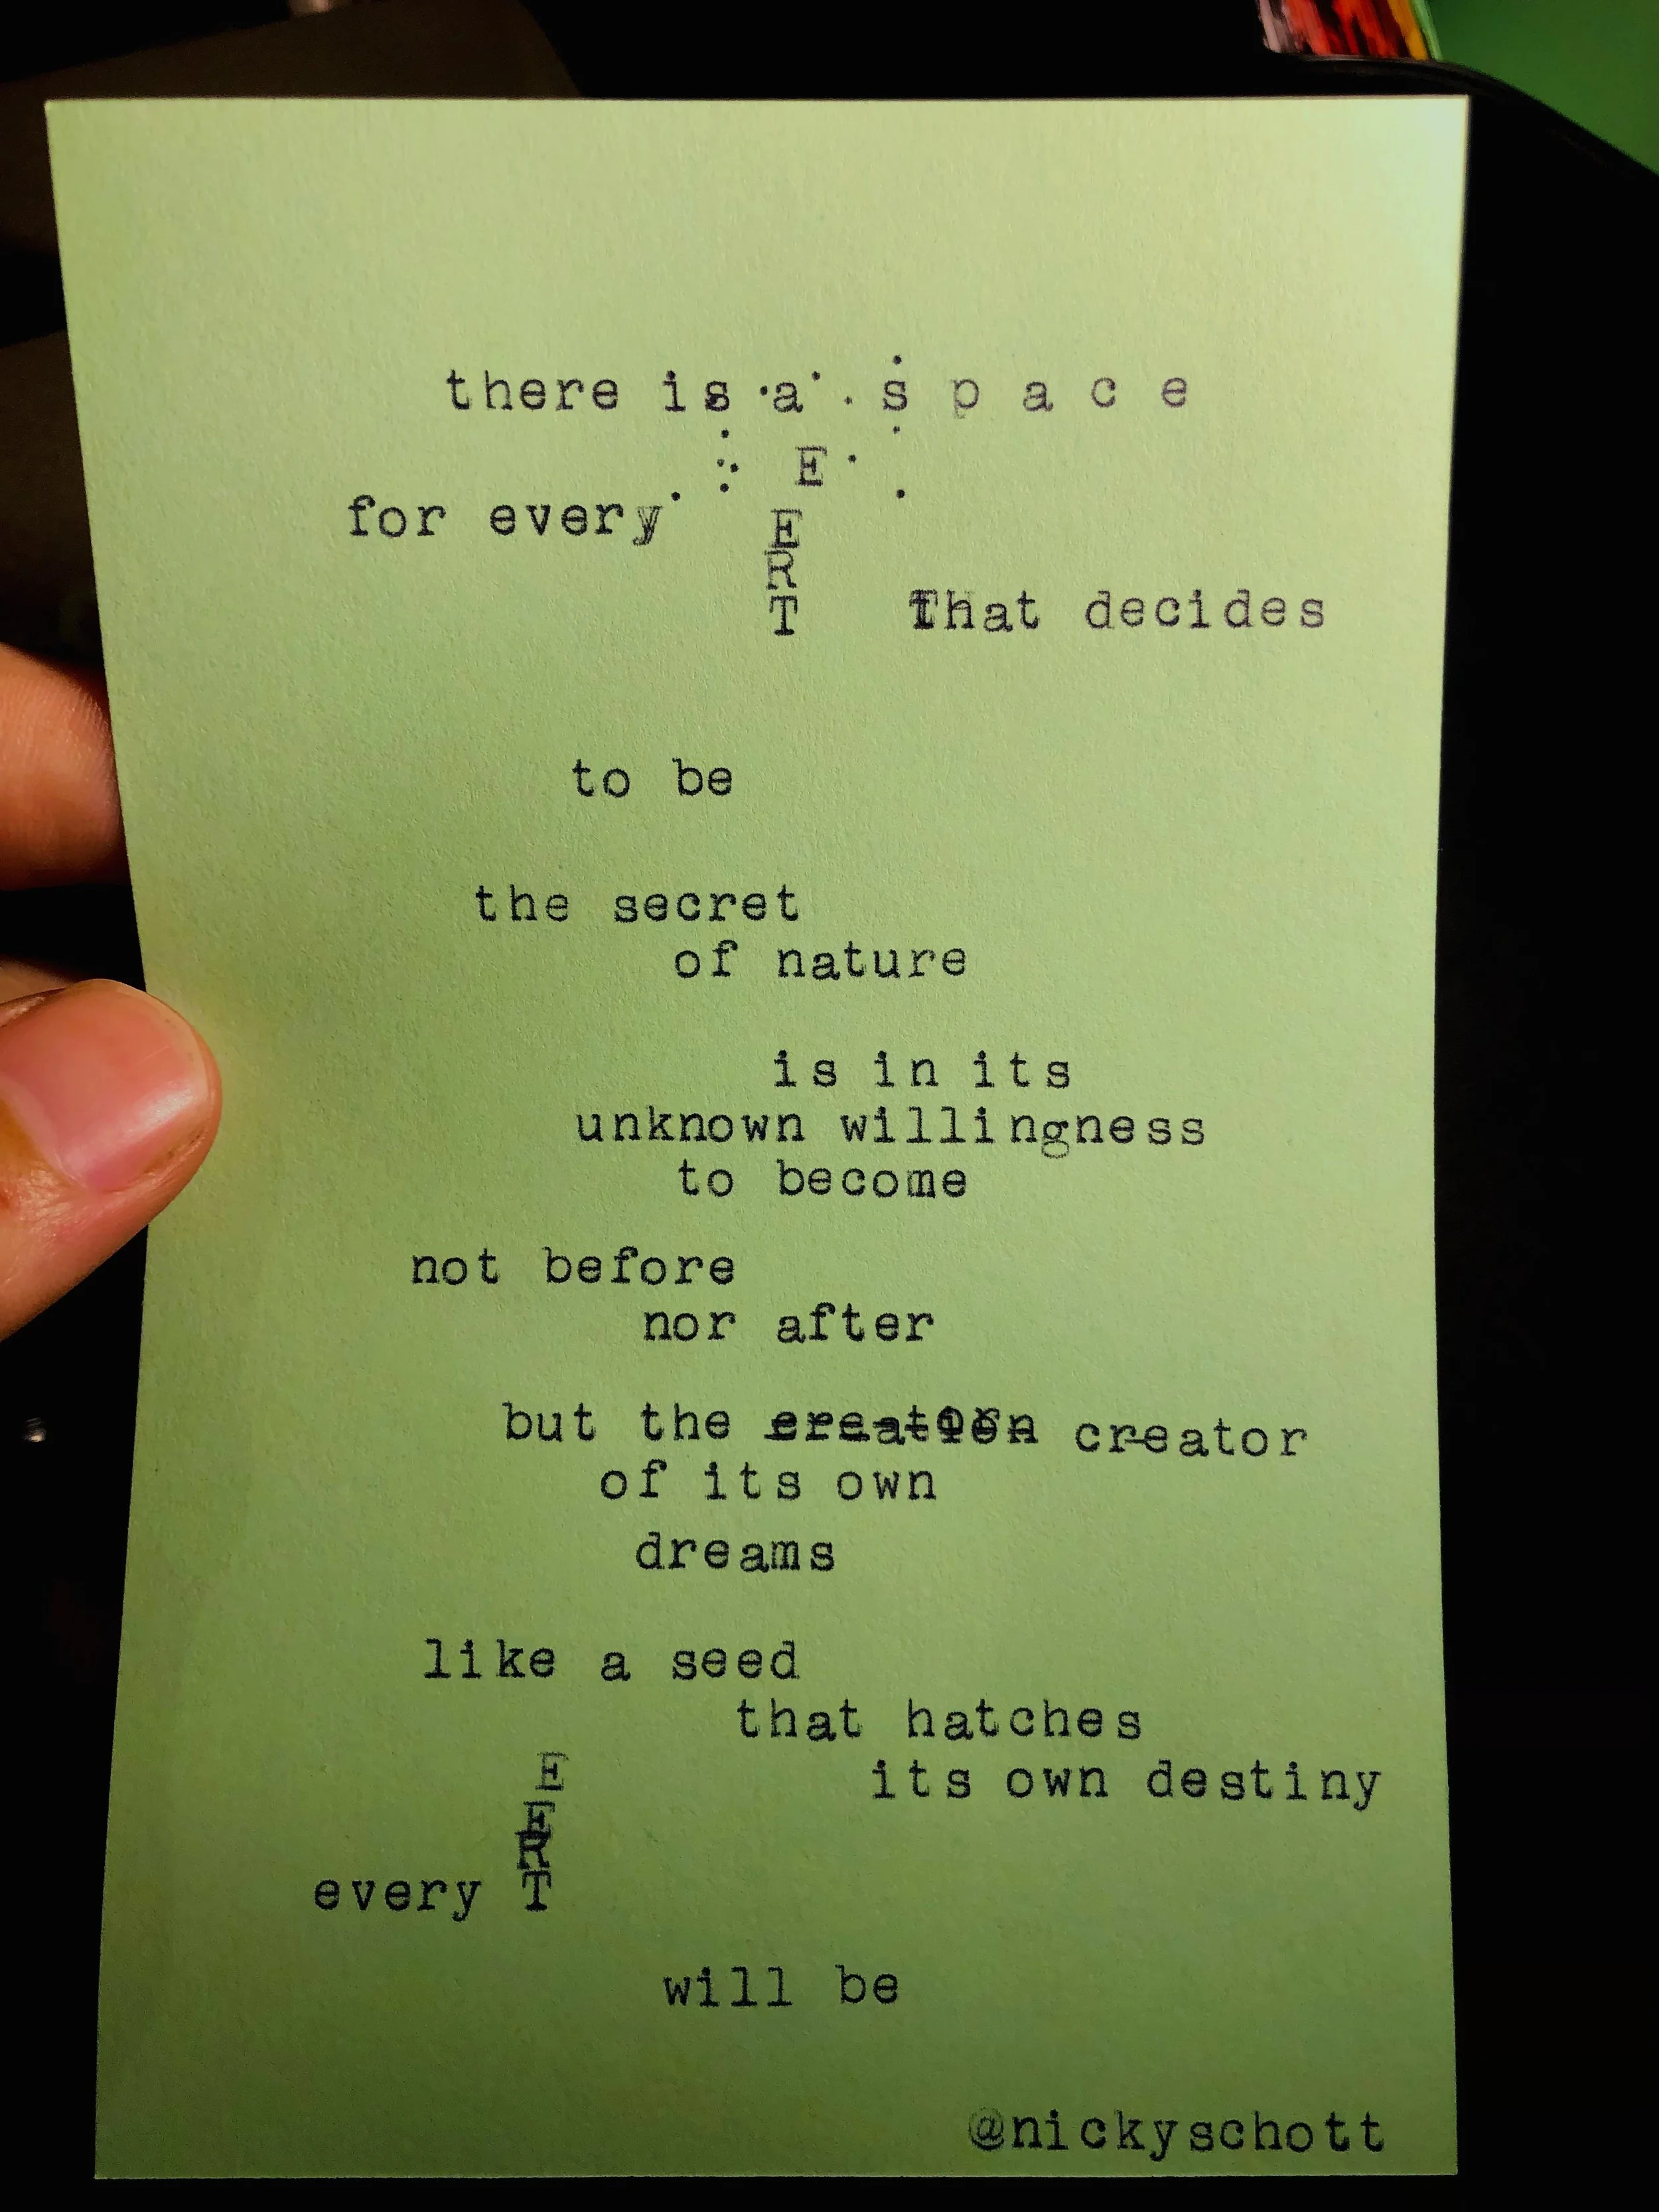 there is a s p a c e
E
for every
E
R
T That decides
to be
the secret
of nature
is in its
unknown willingness
to become
not before
nor after
but the creation creator
of its own
dreams
like a seed
that hatches
E
its own destiny
E
R
every T
will be
@nickyschott